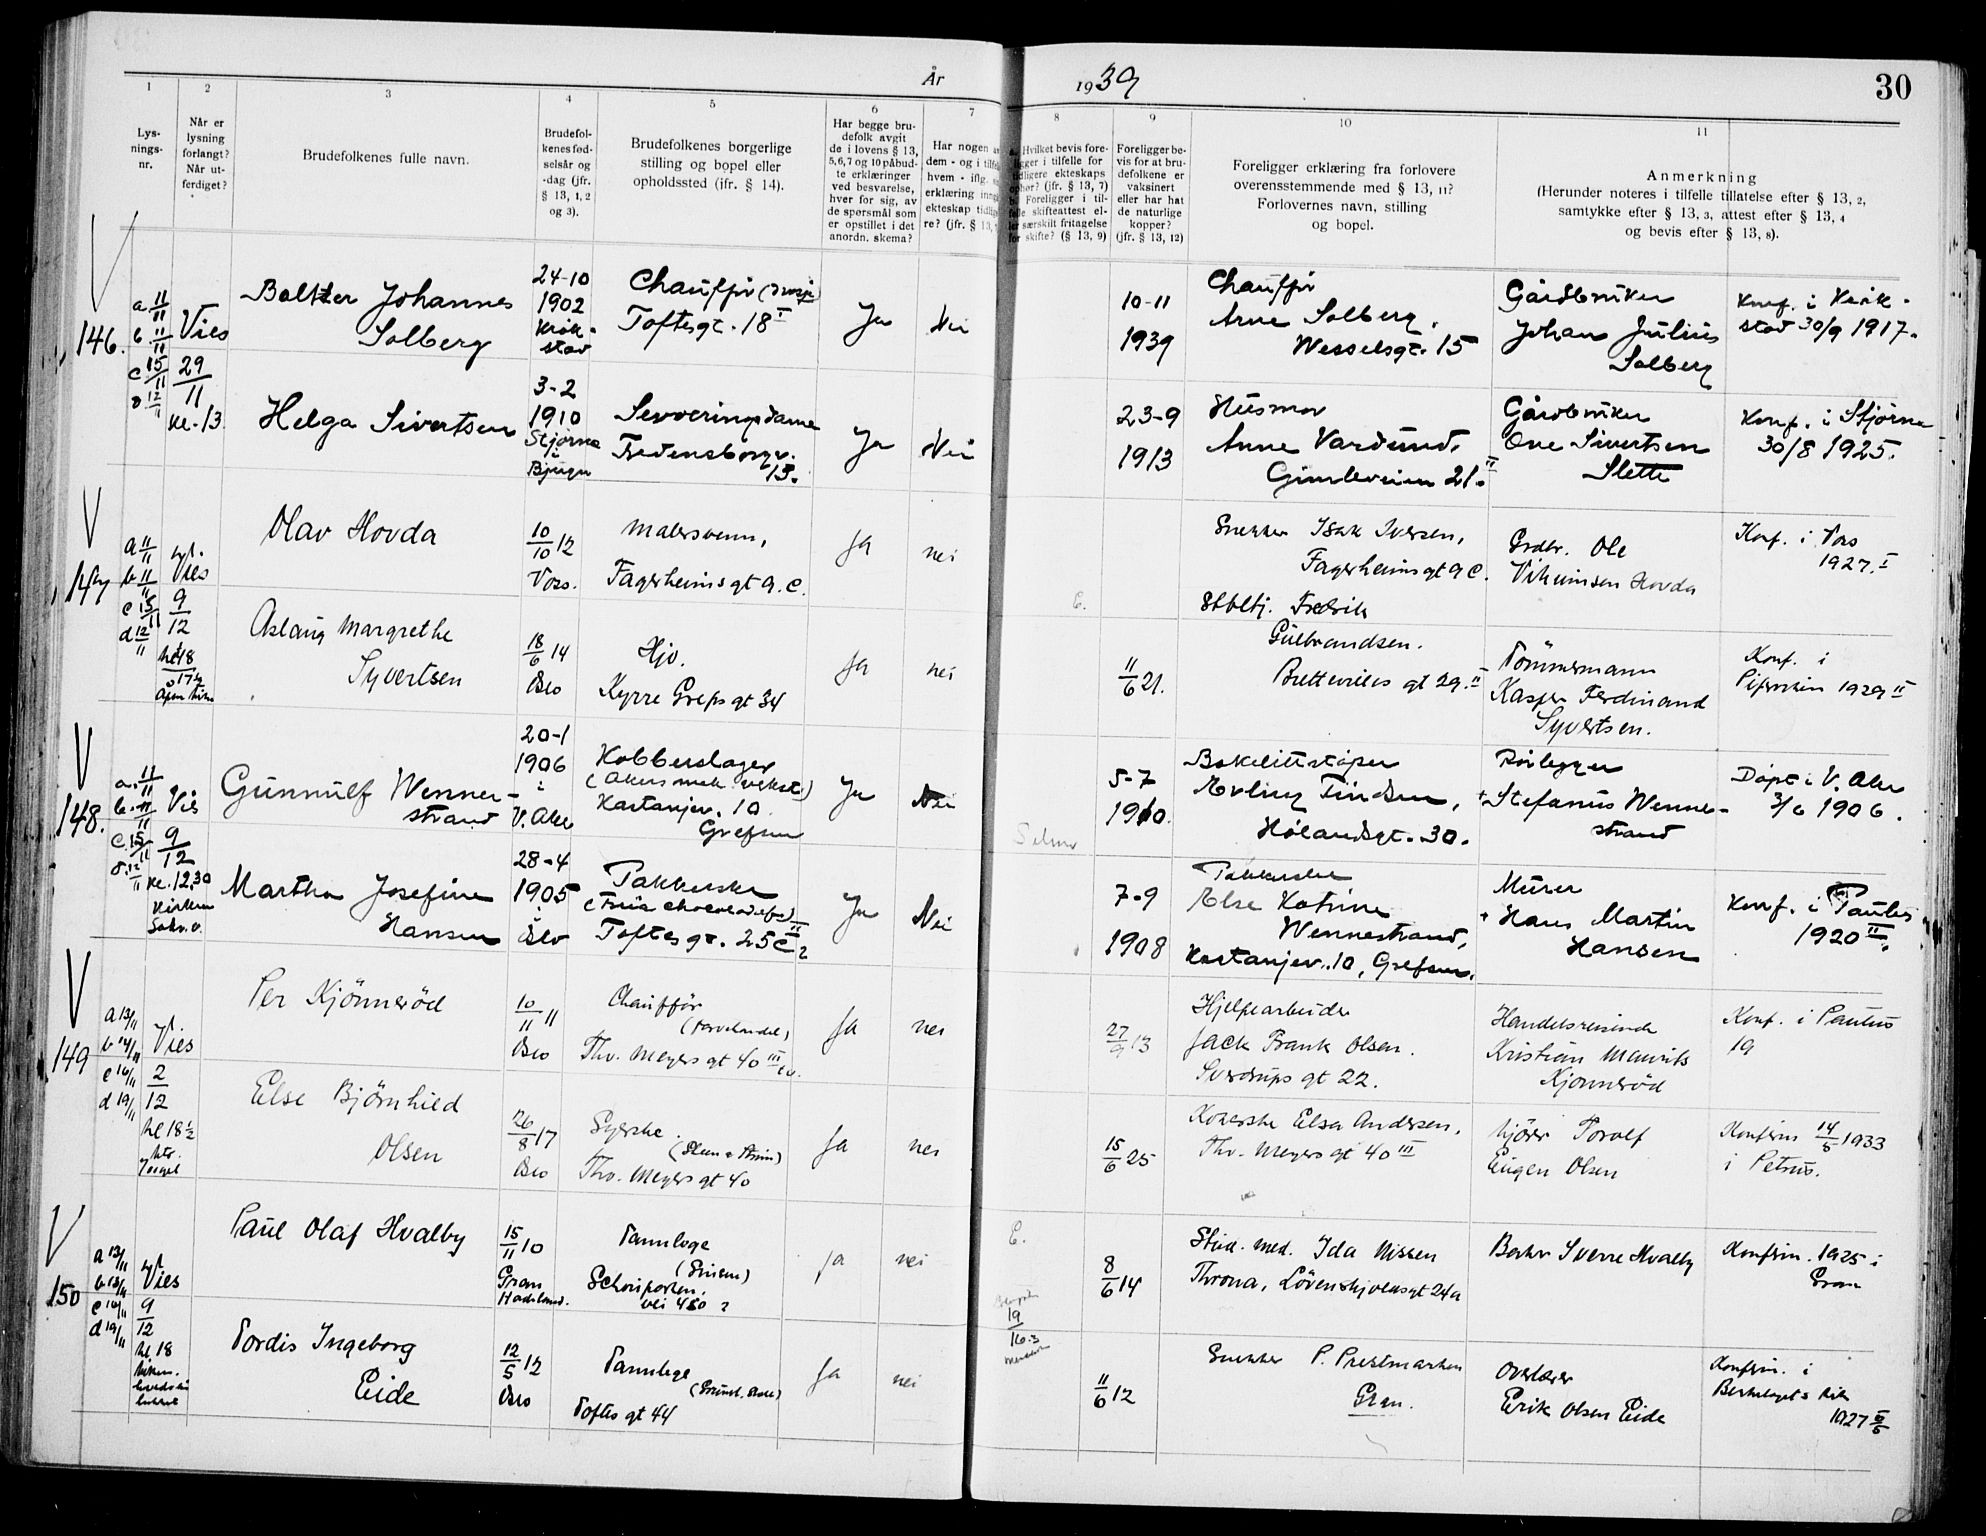 År 1939
30
1 2 3 4 5 6 7 8 9 10 11
Lys-
nings-
nr.
Når er
lysning
forlangt?
Når ut-
ferdiget?
Brudefolkenes fulle navn.
Brudefol-
kenes fød-
selsår og
-dag (jfr.
§ 13, 1, 2
og 3).
Brudefolkenes borgerlige
stilling og bopel eller
opholdssted (jfr. § 14).
Har begge bru-
defolk avgit
de i lovens § 13,
5, 6, 7 og 10 påbud-
te erklæringer
ved besvarelse,
hver for sig, av
de spørsmål som
er opstillet i det
anordn. skema?
Har nogen av
dem - og i tilfelle
hvem - iflg.
erklæring inngå
ekteskap tidlige
re? (jfr. § 13,
Hvilket bevis fore-
ligger i tilfelle for
tidligere ekteskaps
ophør? (jfr. § 13, 7)
b. Foreligger i til-
felle skifteattest el-
ler særskilt fritagelse
for skifte? (§ 13, 9)
Foreligger be-
vis for at bru-
defolkene er
vaksinert
eller har hat
de naturlige
kopper?
(jfr. § 13, 12)
Foreligger erklæring fra forlovere
overensstemmende med § 13, 11?
Forlovernes navn, stilling
og bopel.
Anmerkning
(Herunder noteres i tilfelle tillatelse efter § 13, 2,
samtykke efter § 13, 3, attest efter § 13, 4
og bevis efter § 13, 8).
146.
a. 11/11
b. 11/11
c 15/11
d 12/11
Vies
29/11
kl. 13
Johannes
Solberg
24-10
1902
Kråk-
stad
Chauffør
Toftesgt. 18 I
Ja
Nei
10-11
1939
Chauffør
Arne Solberg,
Wesselsgt. 15
Gårdbruker
Johan Julius
Solberg
Konf. i Kråk-
stad 30/9 1917.
Helga Sivertsen
3-2
1910
Stjørna
i
Bjugn
Serveringsdame
Fredensborgv.
15.
Ja
Nei
23-9
1913
Husmor
Anne Vardund,
21. II
Gårdbruker
Ove Sivertsen
Slette
Konf. i Stjørna
30/8 1925.
147
a 11/11
b 11/11
c 15/11
d 12/11
Vies
9/12
Olav Hovda
10/10 12
Voss.
Malersvenn,
Fagerheimsgt 9. C.
Ja
nei
Snekker Isak Iversen,
Fagerheimsgt 9 C.
Grdbr. Ole
Hovda
Konf. i Voss
1927. I
Aslaug Margrethe
Syvertsen
18/6 14
Oslo
Hjv.
Kyrre Greps gt 34
Ja
nei
11/6 21.
Fredrik
Gulbrandsen.
gt 29. II
Tømmermann
Kasper Ferdinand
Syvertsen.
Konf. i
1929 II
148.
a. 11/11
b. 11/11
c. 15/11
d. 12/11
Vies
9/12
kl. 12,30
Kirken
Gunnulf Wenne-
strand
20-1
1906
i
V. Aker
Kobberslager
(Akers mek. verkst.)
Kastanjev. 10
Grefsen
Ja
Nei
5-7
1910.
Bakelittstøper
Erling Findsen,
Hølandsgt. 30.
Rørlegger
Stefanus Wenne-
strand
Døpt i V. Aker
3/6 1906.
Martha Josefine
Hansen
28-4
1905
Oslo
Pakkerske
(Freia Chocoladefa.)
Toftesgt. 25 c II
Ja
Nei
7-9
1908
Pakkerske
Else Katrine
Wennestrand,
Kastanjev. 10, Grefsen.
Murer
Hans Martin
Hansen
Konf. i Paulus
1920 II.
149
a 13/11
b 14/11
c 16/11
d 19/11
Vies
2/12
kl 18 1/2
Per Kjønnerød
10/11 11
Oslo
Chauffør
(Farvehandel)
Thv. Meyers gt 40 III
Ja
nei
27/9 13
Hjelpearbeider
Jack Frank Olsen.
Sverdrups gt 22.
Handelsreisende
Kristian Mauritz
Kjønnerød
Konf. i Paulus
19
Else Bjørnhild
Olsen
26/8 17
Oslo
Syerske
(Steen & Strøm)
Thv. Meyers gt 40
Ja
nei
15/6 25
Kokerske Elsa Andersen,
Thv. Meyers gt 40 III
Kjører Torolf
Eugen Olsen
Konfirm 14/5 1933
i Petrus.
150
a 13/11
b 13/11
c 16/11
d 19/11
Vies
9/12
kl. 18
Paul Olaf Hvalby
15/11 10
Gran
Hadeland.
Tannlege
Ja
nei
8/6 14
Stud. med. Ida Nissen
Throna, Løvenskjoldsgt 24a
Baker Sverre Hvalby
Konfirm. 1925 i
Gran
Tordis Ingeborg
Eide
12/5 12
Oslo
Tannlege
Toftes gt 44
Ja
nei
11/6 12
Snekker P. Prestmarken
Gran.
Overlærer
Erik Olsen Eide
Konfirm. i
1927